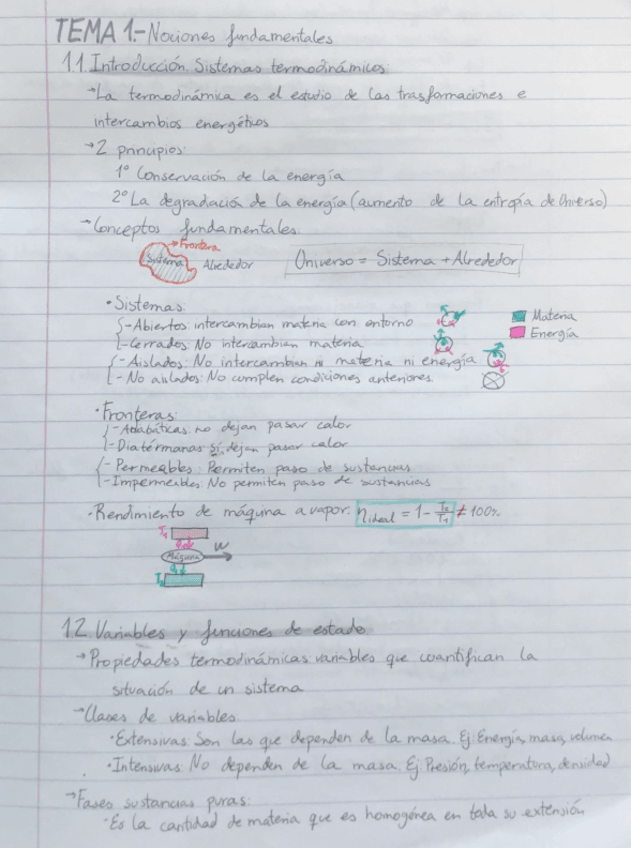 TEMA 1.- Nociones fundamentales
1.1. Introducción. Sistemas termodinámicos:
→La termodinámica es el estudio de las trasformaciones e
intercambios energéticos
→2 principios:
1º Conservación de la energía
2º La degradació de la energía (aumento de la entropía de Universo)
→Conceptos fundamentales:
→Frontera
Sistema
Alrededor
Universo = Sistema + Alrededor
•Sistemas:
-Abiertos: intercambian materia con entorno
-Cerrados: No intercambian materia
-Aislados: No intercambian ni materia ni energía
-No aislados: No cumplen condiciones anteriores
Materia
Energía
•Fronteras:
-Adabáticas: no dejan pasar calor
-Diatérmanas: sí dejan pasar calor
-Permeables: Permiten paso de sustancias
-Impermeables: No permiten paso de sustancias
•Rendimiento de máquina a vapor: η ideal = 1 - T₂/T₁ ≠ 100%
T₁
W
Máquina
T₂
1.2. Variables y funciones de estado
→Propiedades termodinámicas: variables que cuantifican la
situación de un sistema
→Clases de variables:
•Extensivas: Son las que dependen de la masa. Ej: Energía, masa, volumen
•Intensivas: No dependen de la masa. Ej: Presión, temperatura, densidad
→Fases sustancias puras:
•Es la cantidad de materia que es homogénea en toda su extensión